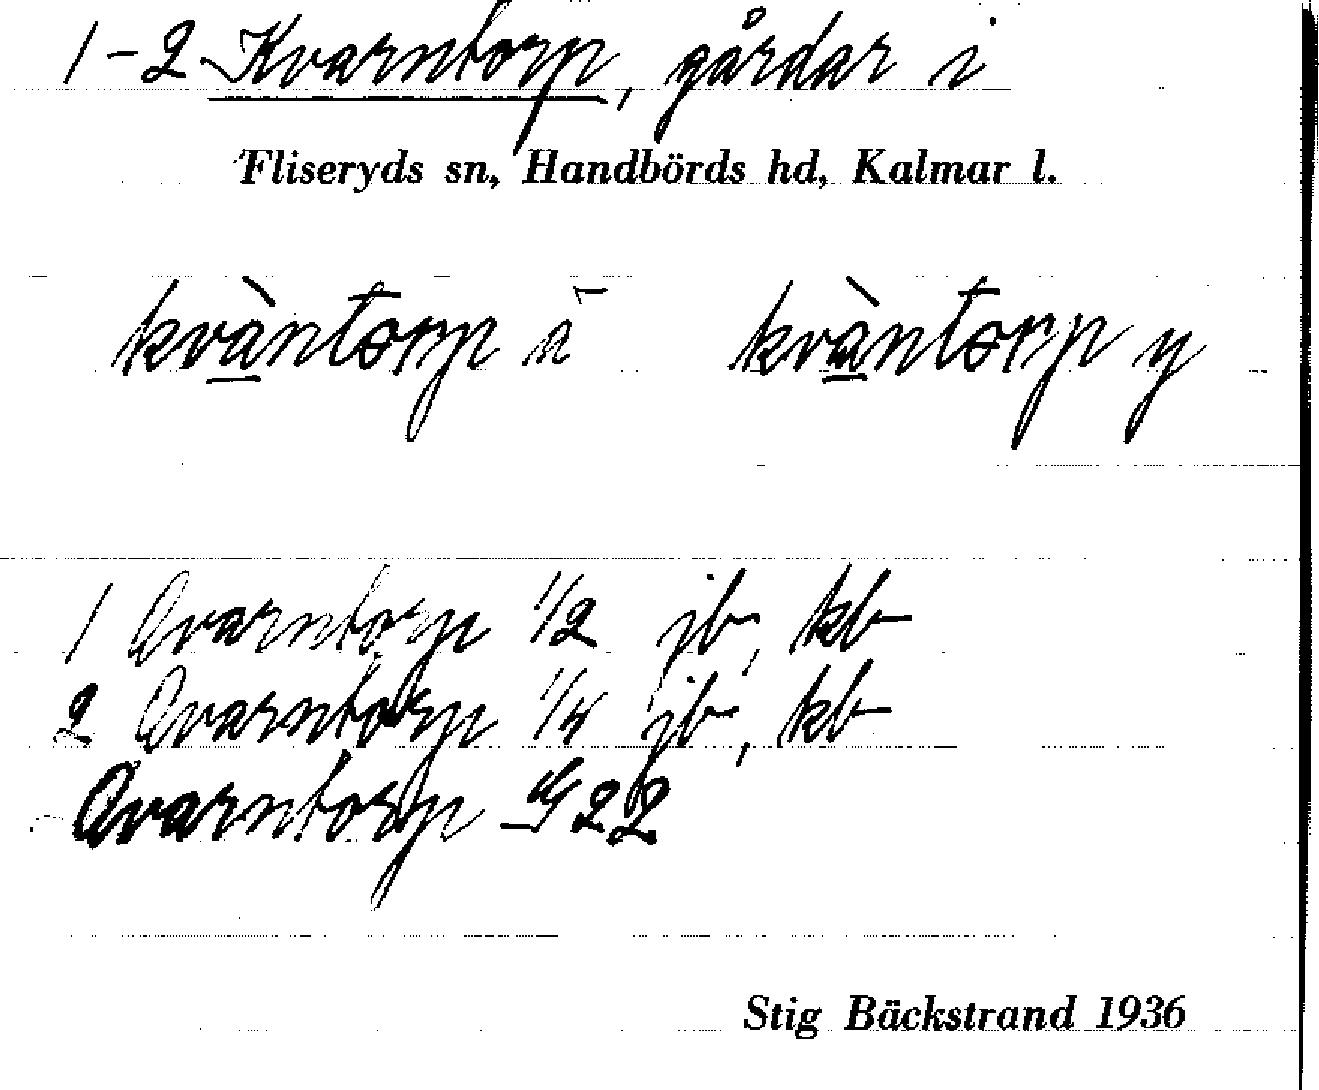 1-2 Kvarntorp, gårdar i
Fliseryds sn, Handbörds hd, Kalmar l.
kvàntorp ä kvàntorp y
1 Qvarntorp 1/2 jb, kb
2 Qvarntorp 1/4 jb, kb
Qvarntorp G 22
Stig Bäckstrand 1936